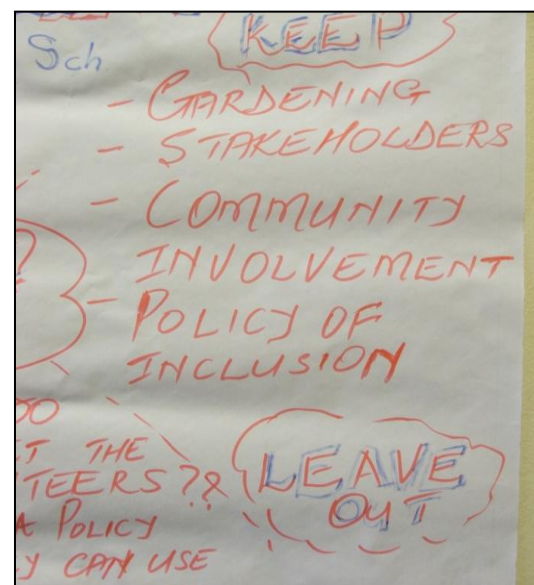 Sch
KEEP
- GARDENING
- STAKEHOLDERS
- COMMUNITY
INVOLVEMENT
- POLICY OF
INCLUSION
?
THE
TEERS ??
A POLICY
Y CAN USE
LEAVE
OUT